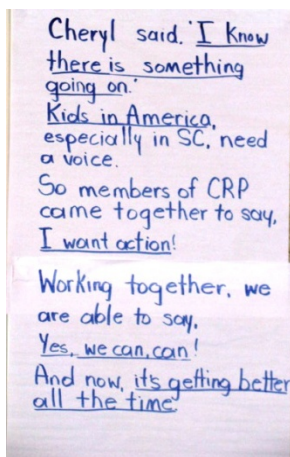 Cheryl said. 'I know
there is something
going on.'
Kids in America,
especially in SC, need
a voice.
So members of CRP
came together to say,
I want action!
Working together, we
are able to say,
Yes, we can, can!
And now, it's getting better
all the time.